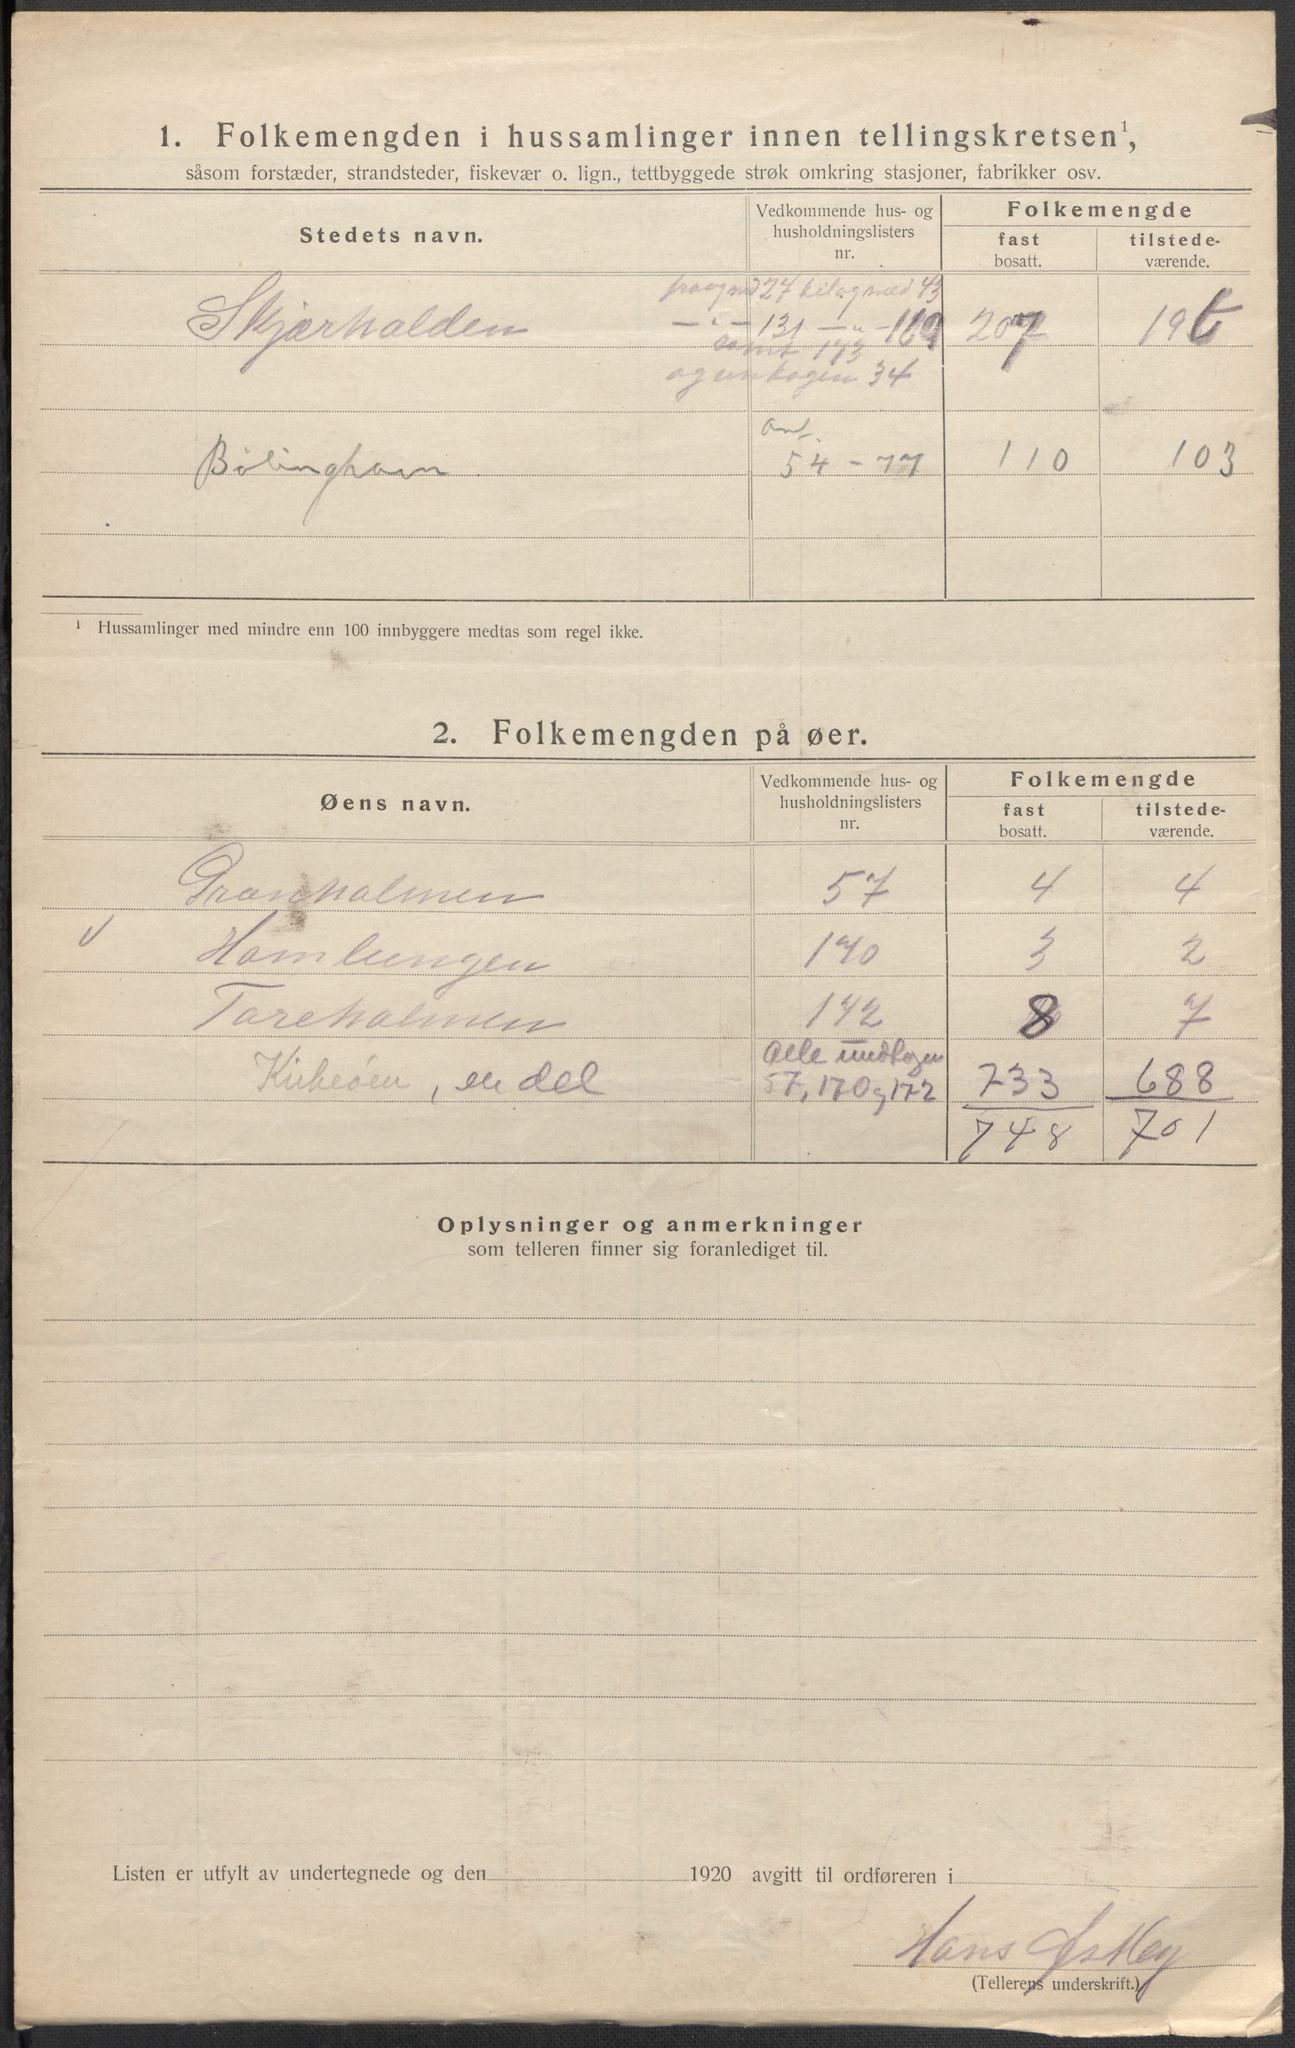 1. Folkemengden i hussamlinger innen tellingskretsen¹,
såsom forstæder, strandsteder, fiskevær o. lign., tettbyggede strøk omkring stasjoner, fabrikker osv.
Stedets navn. Vedkommende hus- og husholdningslisters nr. Folkemengde
fast bosatt. tilstede-værende.
fraogmed 27 tilogmed 43
Skjærhalden — " — 131 — " — 169 207 196
samt 173
og untagen 34
Ant.
Bölinghavn 54 - 77 110 103
¹ Hussamlinger med mindre enn 100 innbyggere medtas som regel ikke.
2. Folkemengden på øer.
Øens navn. Vedkommende hus- og husholdningslisters nr. Folkemengde
fast bosatt. tilstede-værende.
Granholmen 57 4 4
Hamlungen 170 3 2
Tareholmen 172 8 7
Kirkeöen, en del Alle undtagen 57, 170 og 172 733 688
748 701
Oplysninger og anmerkninger
som telleren finner sig foranlediget til.
Listen er utfylt av undertegnede og den 1920 avgitt til ordføreren i
Hans Østby
(Tellerens underskrift.)